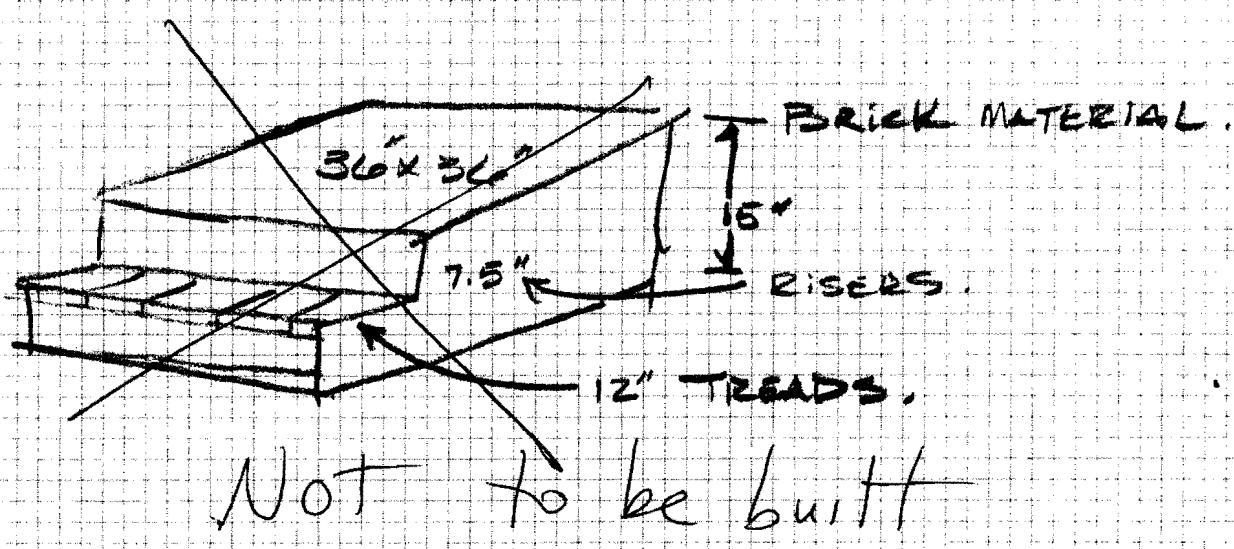 BRICK MATERIAL.
36" x 36"
15"
7.5"
RISERS.
12" TREADS.
Not to be built